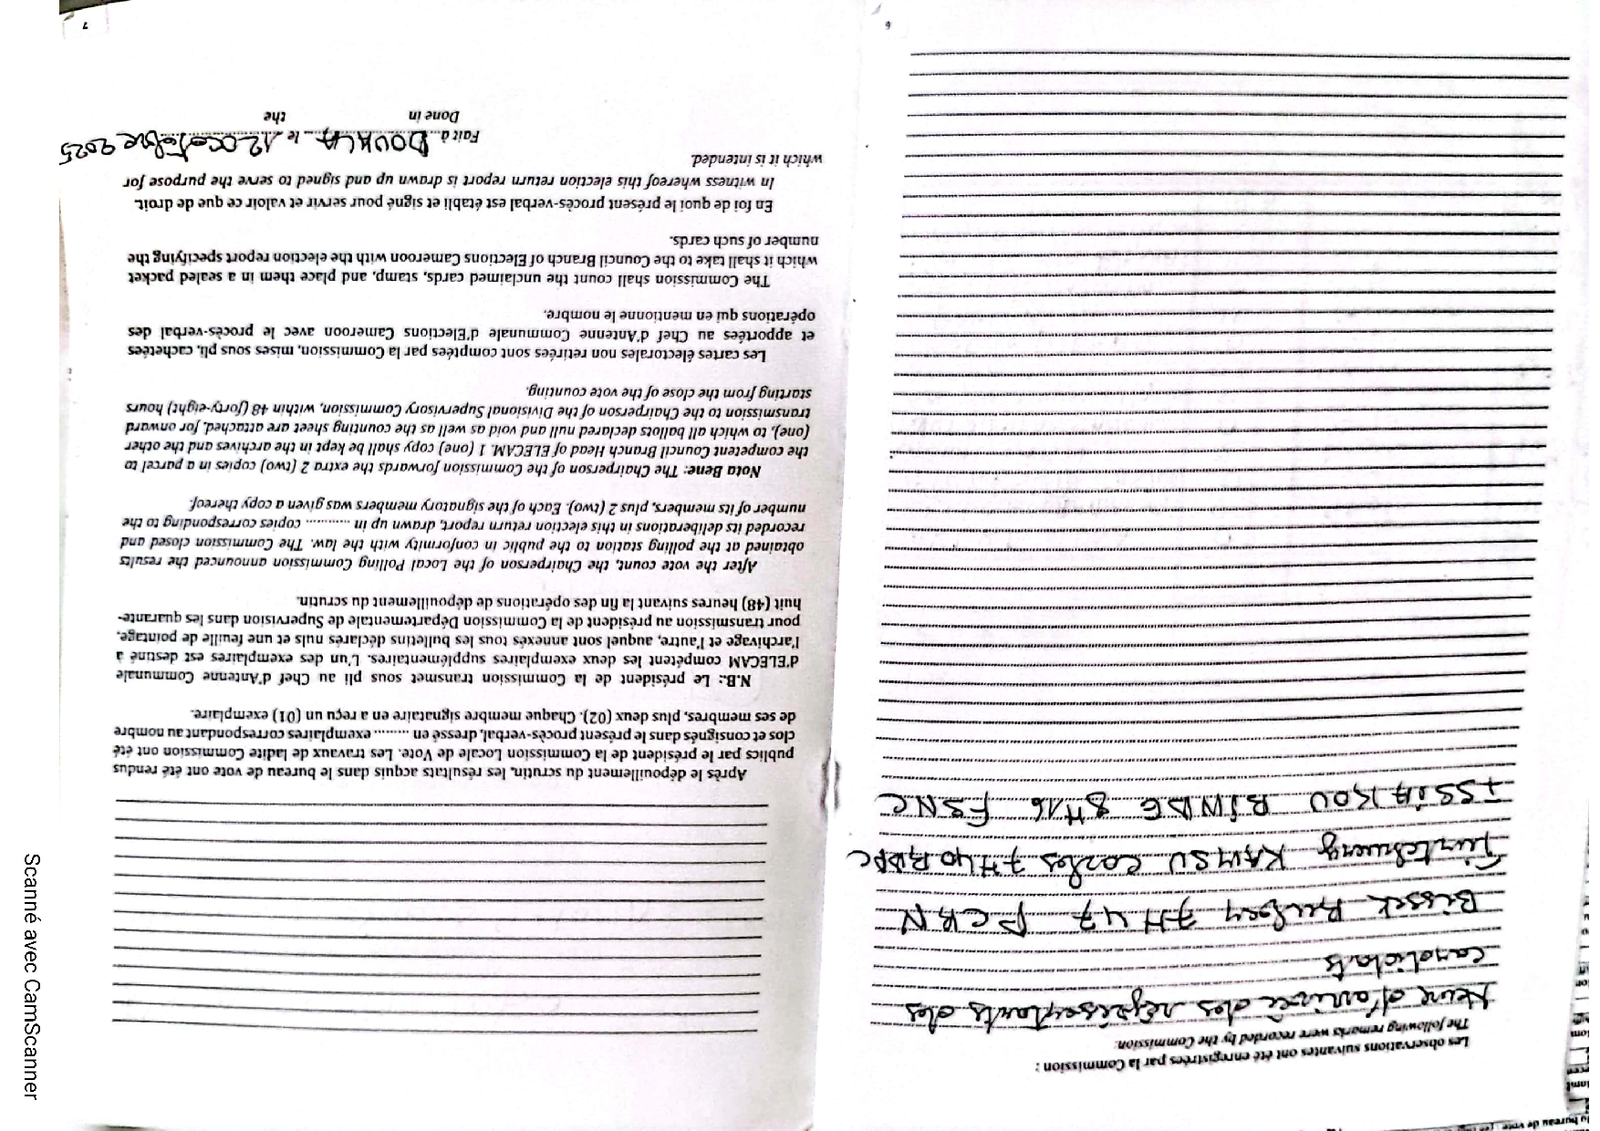 Les observations suivantes ont été enregistrées par la Commission :
The following remarks were recorded by the Commission:
Heure d'arrivée des représentants des
candidats
Bissek 7H47 PCRN
KAMSU Carlos 7H40 RDPC
ISSIAKOU BINDE 8H16 FSNC
6
Après le dépouillement du scrutin, les résultats acquis dans le bureau de vote ont été rendus
publics par le président de la Commission Locale de Vote. Les travaux de ladite Commission ont été
clos et consignés dans le présent procès-verbal, dressé en ......... exemplaires correspondant au nombre
de ses membres, plus deux (02). Chaque membre signataire en a reçu un (01) exemplaire.
N.B.: Le président de la Commission transmet sous pli au Chef d'Antenne Communale
d'ELECAM compétent les deux exemplaires supplémentaires. L'un des exemplaires est destiné à
l'archivage et l'autre, auquel sont annexés tous les bulletins déclarés nuls et une feuille de pointage,
pour transmission au président de la Commission Départementale de Supervision dans les quarante-
huit (48) heures suivant la fin des opérations de dépouillement du scrutin.
After the vote count, the Chairperson of the Local Polling Commission announced the results
obtained at the polling station to the public in conformity with the law. The Commission closed and
recorded its deliberations in this election return report, drawn up in .......... copies corresponding to the
number of its members, plus 2 (two). Each of the signatory members was given a copy thereof.
Nota Bene: The Chairperson of the Commission forwards the extra 2 (two) copies in a parcel to
the competent Council Branch Head of ELECAM. 1 (one) copy shall be kept in the archives and the other
(one), to which all ballots declared null and void as well as the counting sheet are attached, for onward
transmission to the Chairperson of the Divisional Supervisory Commission, within 48 (forty-eight) hours
starting from the close of the vote counting.
Les cartes électorales non retirées sont comptées par la Commission, mises sous pli, cachetées
et apportées au Chef d'Antenne Communale d'Elections Cameroon avec le procès-verbal des
opérations qui en mentionne le nombre.
The Commission shall count the unclaimed cards, stamp, and place them in a sealed packet
which it shall take to the Council Branch of Elections Cameroon with the election report specifying the
number of such cards.
En foi de quoi le présent procès-verbal est établi et signé pour servir et valoir ce que de droit.
In witness whereof this election return report is drawn up and signed to serve the purpose for
which it is intended.
Fait à DOUALA le 12 Octobre 2025
Done in the
7
Scanné avec CamScanner